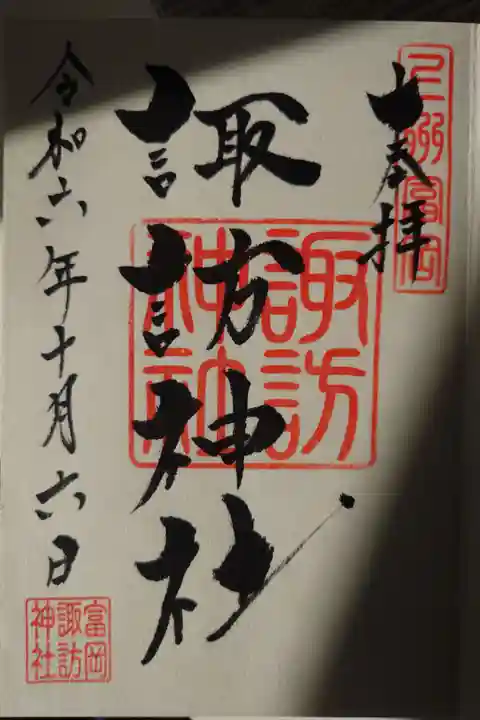 奉拝
上州富岡
諏訪神社
諏訪神社
令和六年十月六日
富岡
諏訪
神社